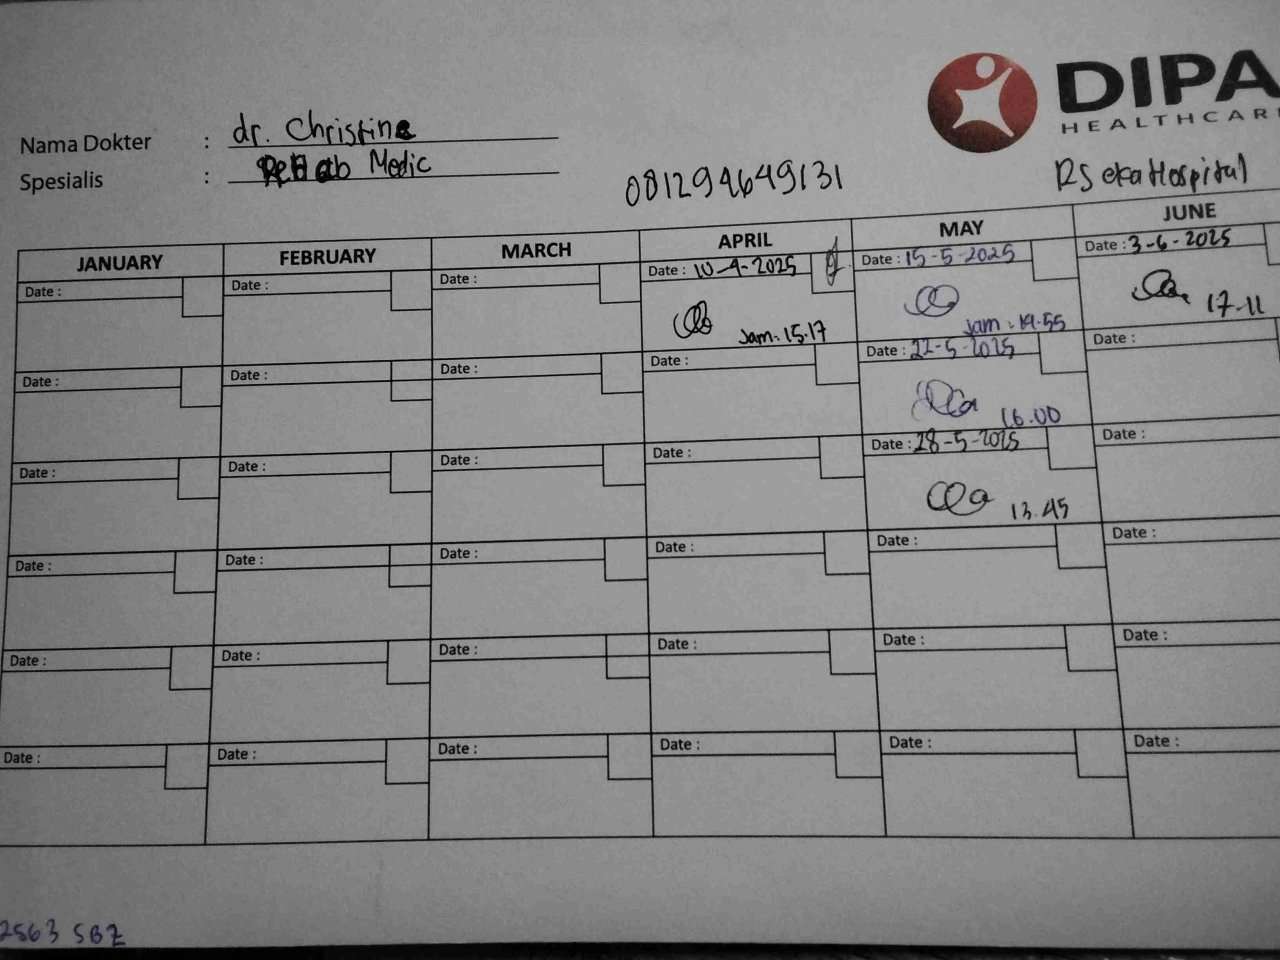 DIPA
HEALTHCARE
Nama Dokter : dr. Christine
Spesialis : Rehab Medic
081294649131
RS eka Hospital
JANUARY FEBRUARY MARCH APRIL MAY JUNE
Date : Date : Date : Date : 10-4-2025 Date : 15-5-2025 Date : 3-6-2025
Jam. 15.17 Jam : 14.55 17-11
Date : Date : Date : Date : Date : 22-5-2025 Date :
16.00
Date : Date : Date : Date : Date : 28-5-2025 Date :
13.45
Date : Date : Date : Date : Date : Date :
Date : Date : Date : Date : Date : Date :
Date : Date : Date : Date : Date : Date :
2563 SBZ